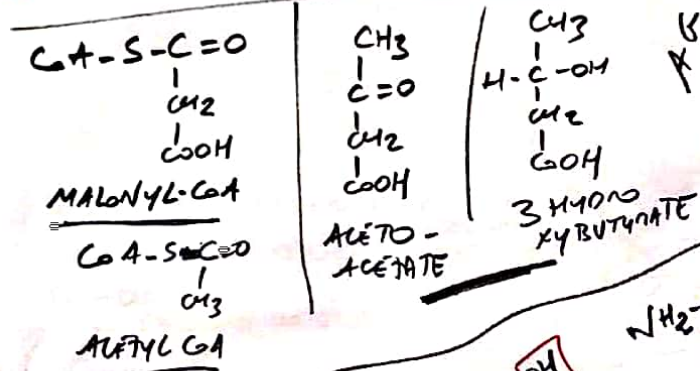 CoA-S-C=O
CH2
COOH
MALONYL-CoA
CoA-S-C=O
CH3
ACETYL CoA
CH3
C=O
CH2
COOH
ACETO-
ACETATE
CH3
H-C-OH
CH2
COOH
3 HYDRO
XYBUTYRATE
NH2-
OH